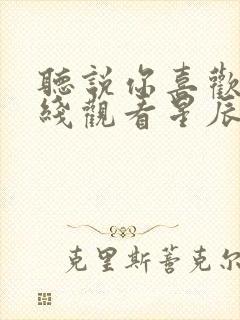 聽說你喜歡
綫觀看星辰
克里斯蒈克尔